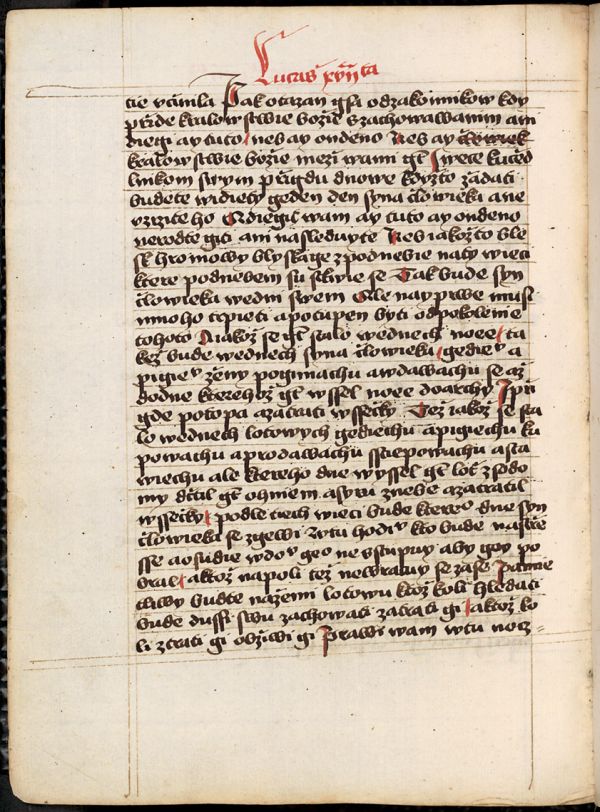 Lucas xvıı ta
tie včinila Jak otazan gsa odzakonnikow kdy
přide kralowstwie božie Szachowawanim ani
diegi ay tuto nes ay ondeno Nes ay člowiek
kralowstwie božie mezi wami gt I wece kučed
lnikom swym přigdu dnowe kdyžto žadati
budete widiety geden den syna člowieka ane
vzrzite ho A diegit wam ay tuto ay ondeno
nerodte giti ani nasleduyte Nes iakožto ble
sk hromowy blyskage zpodnebie naty wieci
ktere podnebem su stkwie se Tak bude syn
člowieka wedni swem Ale nayprwe musi
mnoho trpieti a potupen byti od pokolenie
tohoto A iakož se gt stalo wednech noee ta
kež bude wednech syna člowieka gedie a
pigie ženy pogimachu a wdawachu se až
dodne kterehož gt wssel noee doarchy I při
gde potopa a zatrati wssečky Tež iakož se sta
lo wednech lotowych gediechu a pigiechu ku
powachu a prodawachu sstiepowachu a sta
wiechu ale ktereho dne wyssel gt lot zsodo
my dčtil gt ohniem a syru znebe a zatratil
wssečky podle tiech wieci bude ktere dne syn
člowieka se zgewi Wtu hodi kto bude nastře
sse a osudie wdo geo ne vstupuy aby gey po
bral a ktož napoli tež newracuy se zase Pamie
tliwy budte nazenu lotowu ktož koli hledati
bude dussi swu zachowati zatrati gi a ktož ko
li ztrati gi obžiwi gi Prawi wam wtu nocz